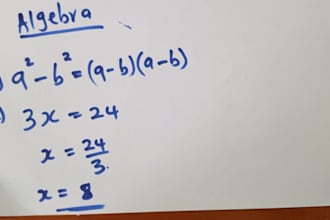 Algebra
) a² - b² = (a-b)(a-b)
) 3x = 24
x = 24/3.
x = 8